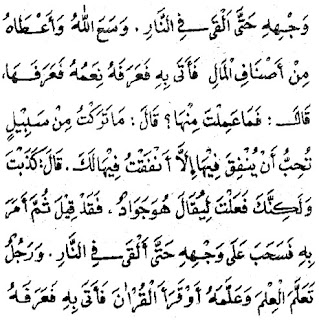 وَجْهِهِ حَتَّى أُلْقِيَ فِي النَّارِ . وَسَّعَ اللّٰهُ وَأَعْطَاهُ
مِنْ أَصْنَافِ الْمَالِ فَأَتَى بِهِ فَعَرَفَهُ نِعَمُهُ فَعَرَفَهَا،
قَالَ : فَمَا عَمِلْتَ مِنْهَا ؟ قَالَ : مَا تَرَكْتُ مِنْ سَبِيْلٍ
تُحِبُّ أَنْ يُنْفِقَ فِيْهَا إِلاَّ أَنْفَقْتُ فِيْهَا لَكَ . قَالَ : كَذَبْتَ
وَلٰكِنَّكَ فَعَلْتَ لِيُقَالَ هُوَ جَوَادٌ ، فَقَدْ قِيْلَ ثُمَّ أَمَرَ
بِهِ فَسَحَبَ عَلَى وَجْهِهِ حَتَّى أُلْقِيَ فِي النَّارِ . وَرَجُلٌ
تَعَلَّمَ الْعِلْمَ وَعَلَّمَهُ أَوْ قَرَأَ الْقُرْاٰنَ فَأَتَى بِهِ فَعَرَفَهُ